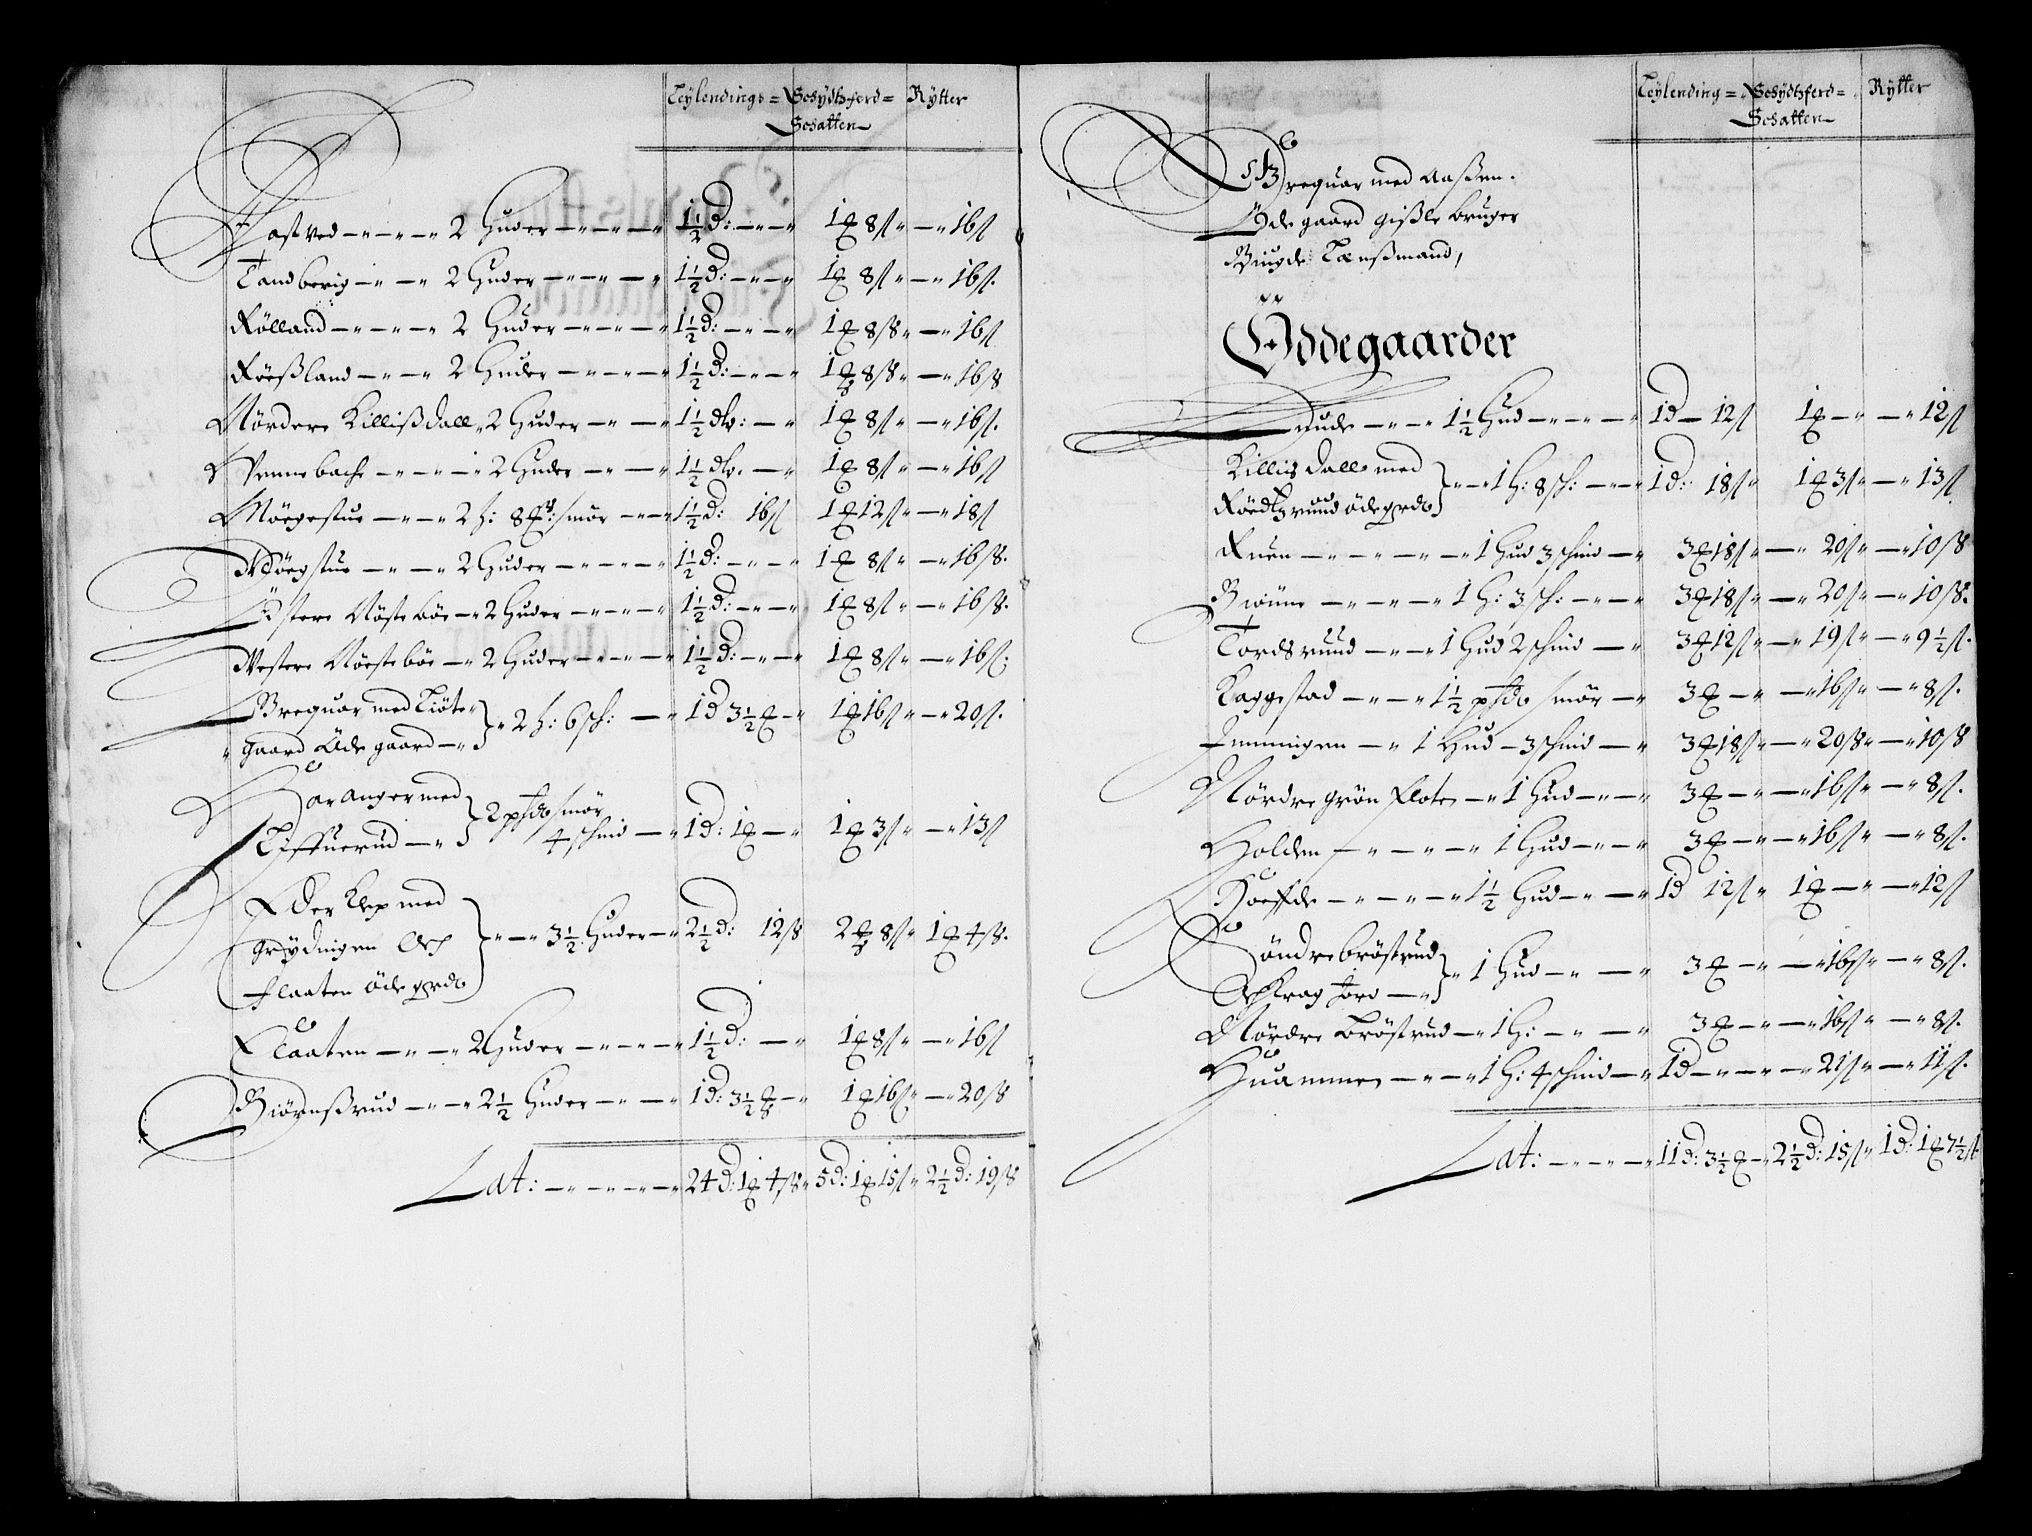 Leylendings= Schydtsferd= Rytter
Schatten
Fastved — 2 Huder — 1½ d: — 1 ₻ 8 ß — 16 ß
Tandberig — 2 Huder — 1½ d: — 1 ₻ 8 ß — 16 ß.
Rölland — 2 Huder — 1½ d: — 1 ₻ 8 ß — 16 ß
Röeßland — 2 Huder — 1½ d: — 1 ₻ 8 ß — 16 ß
Nördere Killißdall 2 Huder — 1½ dlr: — 1 ₻ 8 ß — 16 ß.
Vennebache — 2 Huder — 1½ dlr. — 1 ₻ 8 ß — 16 ß
Möegestue — 2 h: 8 smör — 1½ d: 16 ß 1 ₻ 12 ß — 18 ß
Möegstue — 2 Huder — 1½ d: — 1 ₻ 8 ß — 16 ß.
Östere Nösteböe — 2 Huder — 1½ d: — 1 ₻ 8 ß — 16 ß.
Vestere Nöesteböe — 2 Huder — 1½ d: — 1 ₻ 8 ß — 16 ß:
Brequar med Tiöte
gaard Öde gaard — 2 h: 6 sk: — 1 d 3½ ₻ — 1 ₻ 16 ß — 20 ß.
Haranger med
Liffuerud — 2 pfd smör
4 schind — 1 d: 1 ₻ — 1 ₻ 3 ß — 13 ß
Ederklep med
Grydnigen Och
Flaaten öde grd — 3½ Huder — 2½ d: 12 ß 2 ₻ 8 ß 1 ₻ 4 ß.
Flaaten — 2 Huder — 1½ d: — 1 ₻ 8 ß — 16 ß
Biörnßrud — 2½ Huder — 1 d: 3½ ₻ — 1 ₻ 16 ß — 20 ß
Lat: — 24 d: 1 ₻ 4 ß 5 d: 1 ₻ 15 ß 2½ d: 19 ß
Leylending= Schydtsferd= Rytter
Schatten
Brequar med Aaßen
Öde gaard Gißle bruger
Biugde Lænßmand,
Öddegaarder
Lunde — 1½ Hud — 1 d — 12 ß 1 ₻ — 12 ß
Killisdalle med
Röedtzrund öde grd — 1 h: 8 sk: — 1 d: 18 ß 1 ₻ 3 ß — 13 ß
Ruen — 1 Hud 3 schind — 3 ₻ 18 ß — 20 ß — 10 ß
Biönne — 1 h: 3 sk: — 3 ₻ 18 ß — 20 ß — 10 ß.
Tordsrund — 1 Hud 2 schind — 3 ₻ 12 ß — 19 ß — 9½ ß.
Kaggestad — 1½ pfd smör — 3 ₻ — 16 ß — 8 ß.
Jemmingen — 1 Hud — 3 schind — 3 ₻ 18 ß — 20 ß — 10 ß
Nördre Grönflote — 1 Hud — 3 ₻ — 16 ß — 8 ß.
Holden — 1 Hud — 3 ₻ — 16 ß — 8 ß.
Hoeffde — 1½ Hud — 1 d 12 ß 1 ₻ — 12 ß
Söndre bröstrud
Och Krag jord — 1 Hud — 3 ₻ — 16 ß — 8 ß.
Nördre Bröstrud — 1 h: — 3 ₻ — 16 ß — 8 ß.
Huammen — 1 h: 4 schind — 1 d — 21 ß — 11 ß.
Lat: — 11 d: 3½ ₻ — 2½ d: 15 ß 1 d: 1 ₻ 7½ ß